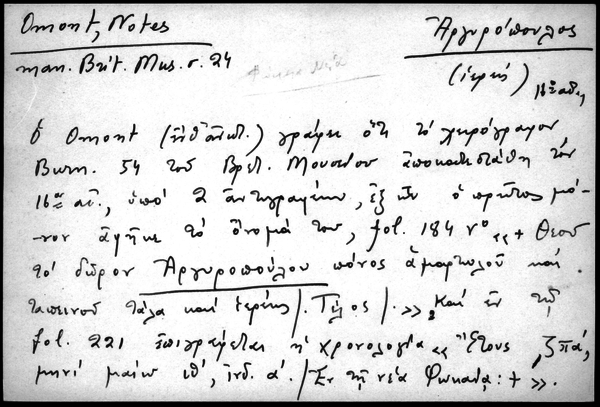 Omont, Notes
man. Brit. Mus. σ. 24
Ἀργυρόπουλος
(ἱερεύς)
16ος αἰ.
Φώκαια Νέα
Ὁ Omont (ἔνθ' ἀνωτ.) γράφει ὅτι τὸ χειρόγραφον
Burn. 54 τοῦ Βρετ. Μουσείου ἀποκατεστάθη τὸν
16ον αἰ., ὑπὸ 2 ἀντιγραφέων, ἐξ ὧν ὁ πρῶτος μό-
νον ἀφῆκε τὸ ὄνομά του, fol. 184 vº «+ Θεοῦ
τὸ δῶρον Ἀργυροπούλου πόνος ἁμαρτωλοῦ καὶ
ταπεινοῦ τάλα καὶ ἱερέως /. Τέλος /. ». Καὶ ἐν τῷ
fol. 221 ἐπιγράφεται ἡ χρονολογία « Ἔτους ͵ζπα',
μηνὶ μαίῳ ιθ', ἰνδ. α'. / Ἐν τῇ νέᾳ Φωκαίᾳ: + ».